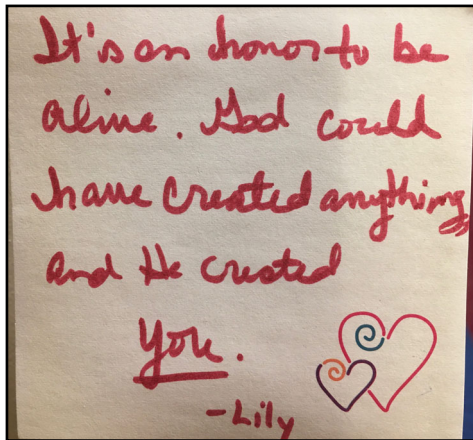 It's an honor to be
alive. God could
have created anything,
and He created
You.
-Lily